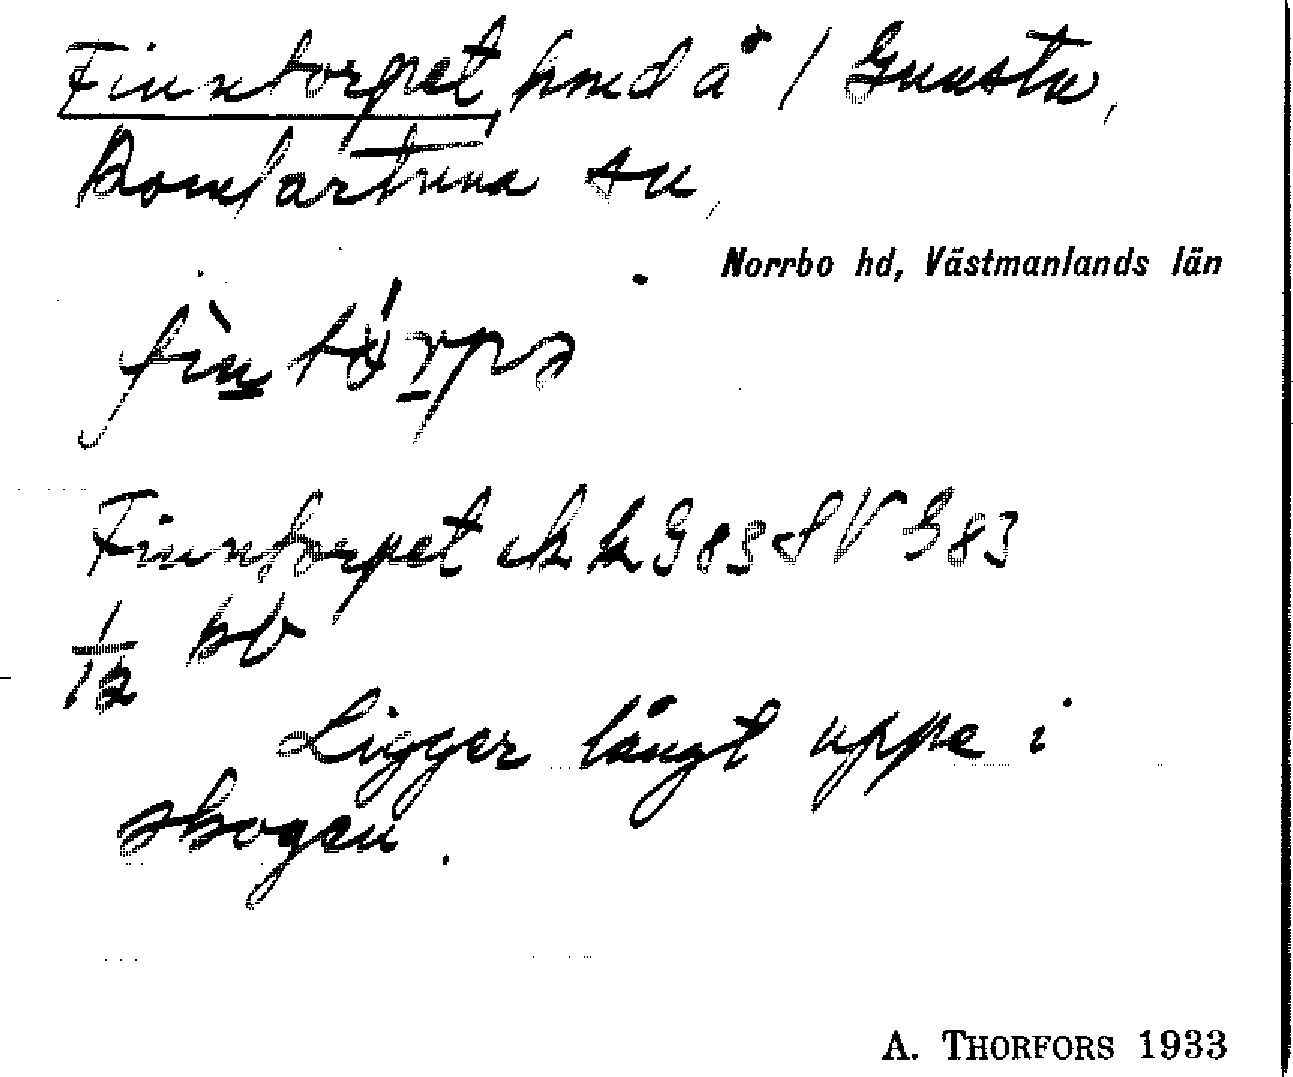 Finntorpet hmd å / Gunsta,
Romfartuna sn,
Norrbo hd, Västmanlands län
fìntórpə
Finntorpet ck k G 83 S V G 83
1/12 kb
Ligger långt uppe i
skogen.
A. THORFORS 1933